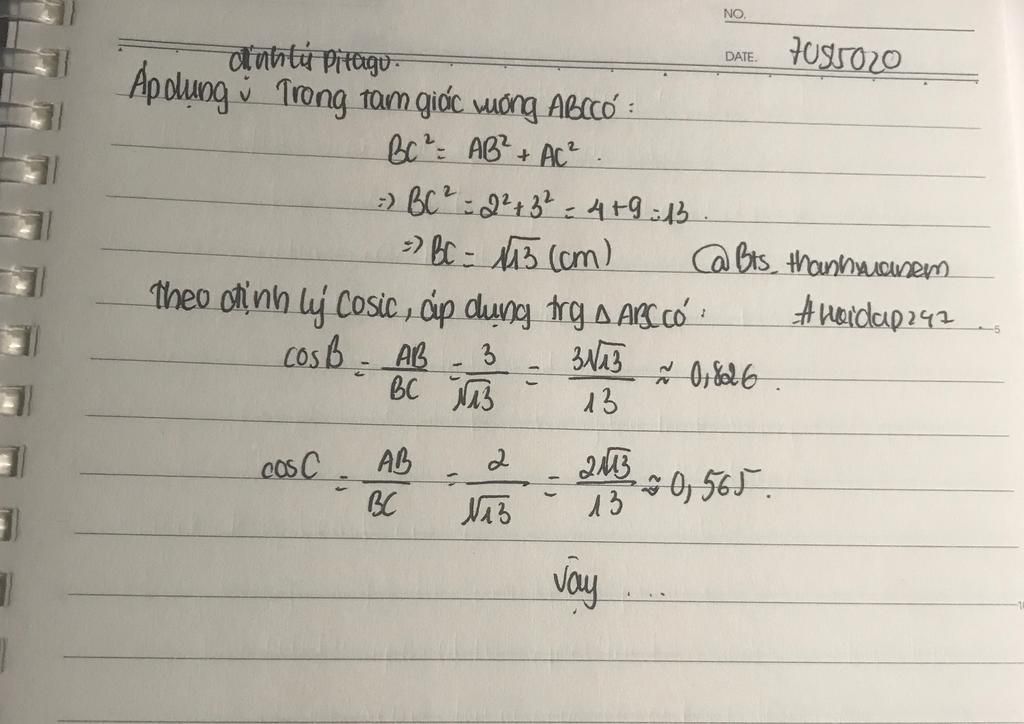 NO.
DATE. 7095020
định lý Pitago.
Áp dụng v Trong tam giác vuông ABCCÓ:
BC² = AB² + AC².
=> BC² = 2² + 3² = 4 + 9 = 13.
=> BC = √13 (cm) @Bts_thanhxuanem
Theo định lý Cosic, áp dụng trg △ ABC có: #hoidap247
cosB = AB/BC = 3/√13 = 3√13/13 ≈ 0,826.
5
cosC = AB/BC = 2/√13 = 2√13/13 ≈ 0,565.
Vậy ...
10